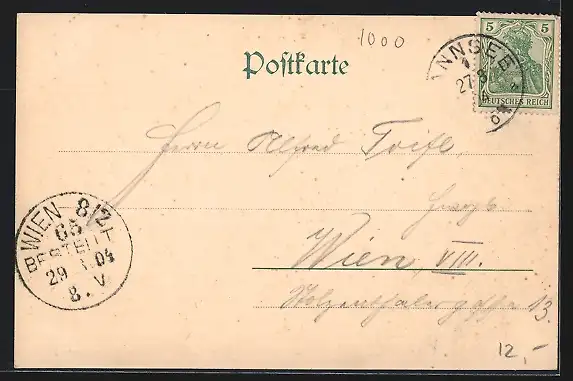 1000
Postkarte
5 5
DEUTSCHES REICH
NNSEE
27 8
Herrn Alfred
Wien, VIII.
13.
WIEN 8/2
65
BESTELLT
29 04
8. V
12,-